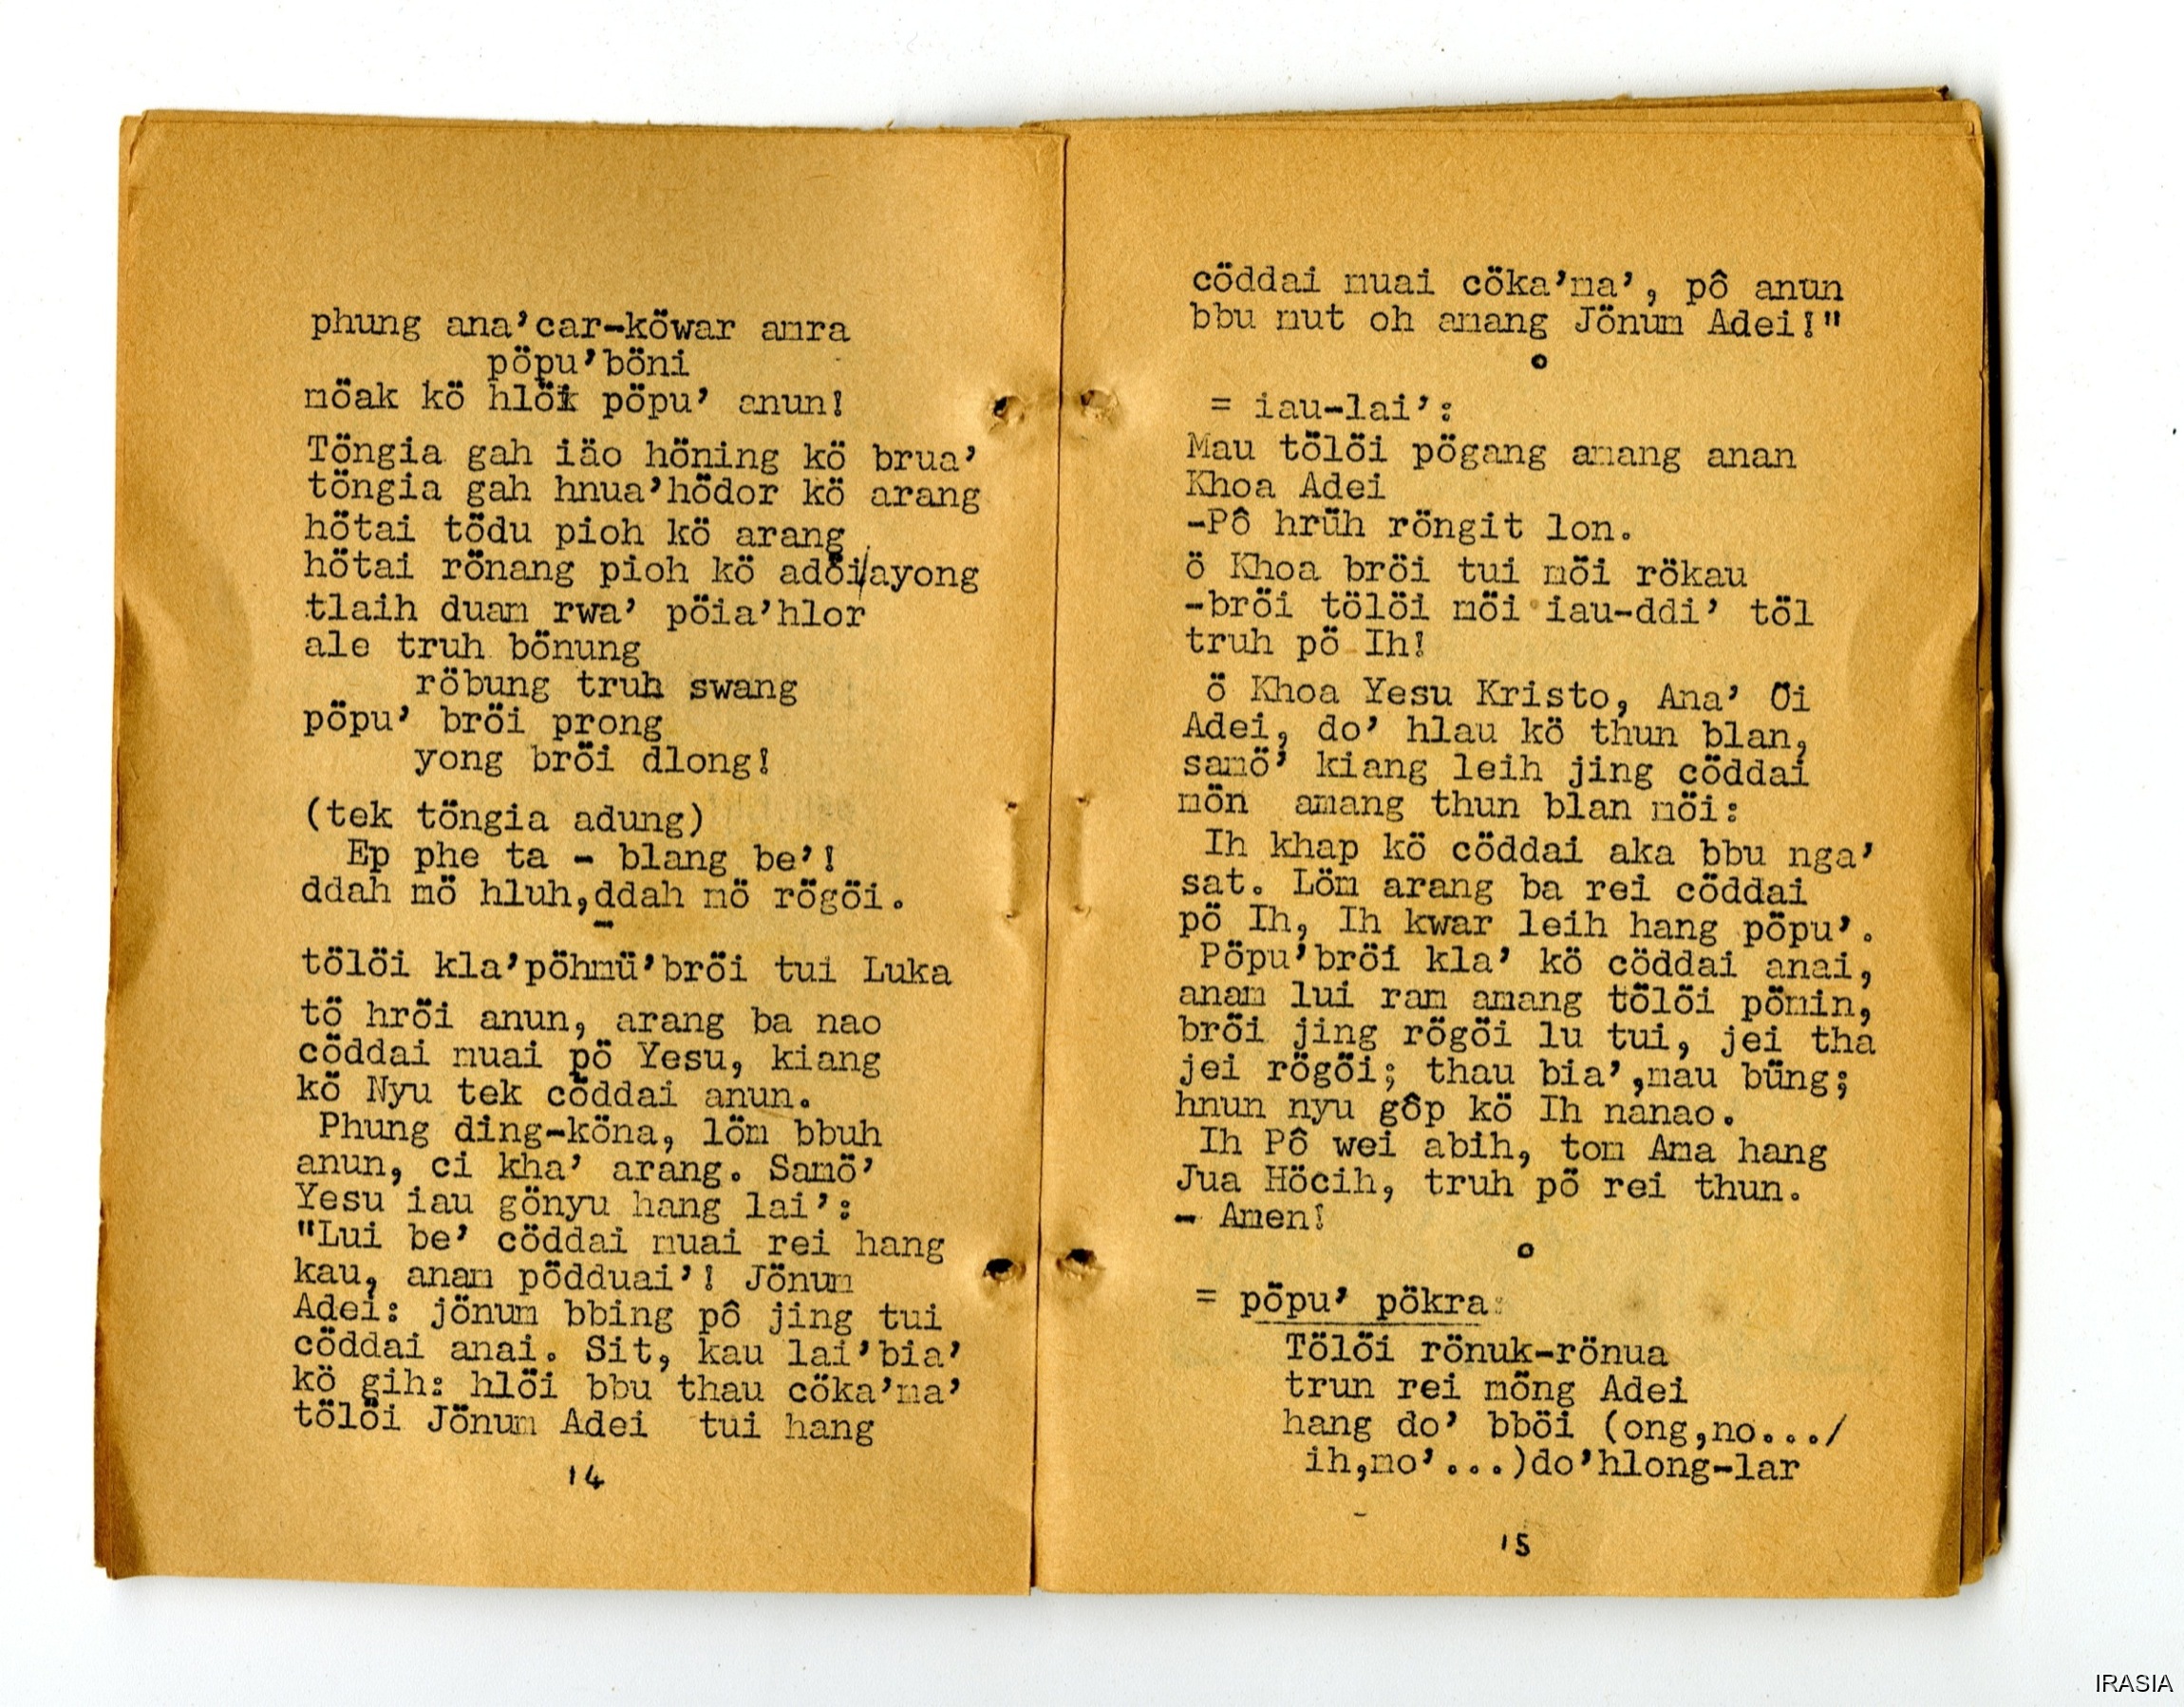 phung ana’car-köwar amra
pöpu’böni
möak kö hlöi pöpu’ anun!
Töngia gah iäo höning kö brua’
töngia gah hnua’hödor kö arang
hötai tödu pioh kö arang
hötai rönang pioh kö adöi/ayong
tlaih duam rwa’ pöia’hlor
ale truh bönung
röbung truh swang
pöpu’ bröi prong
yong bröi dlong!
(tek töngia adung)
Ep phe ta - blang be’!
ddah mö hluh,ddah mö rögöi.
-
tölöi kla’pöhmü’bröi tui Luka
tö hröi anun, arang ba nao
cöddai muai pö Yesu, kiang
kö Nyu tek cöddai anun.
Phung ding-köna, löm bbuh
anun, ci kha’ arang. Samö’
Yesu iau gönyu hang lai’:
"Lui be’ cöddai muai rei hang
kau, anam pödduai’! Jönum
Adei: jönum bbing pô jing tui
cöddai anai. Sit, kau lai’bia’
kö gih: hlöi bbu thau cöka’ma’
tölöi Jönum Adei tui hang
14
cöddai muai cöka’ma’, pô anun
bbu mut oh amang Jönum Adei!"
o
= iau-lai’:
Mau tölöi pögang amang anan
Khoa Adei
-Pô hrüh röngit lon.
ö Khoa bröi tui möi rökau
-bröi tölöi möi iau-ddi’ töl
truh pö Ih!
ö Khoa Yesu Kristo, Ana’ Öi
Adei, do’ hlau kö thun blan,
samö’ kiang leih jing cöddai
mön amang thun blan möi:
Ih khap kö cöddai aka bbu nga’
sat. Löm arang ba rei cöddai
pö Ih, Ih kwar leih hang pöpu’.
Pöpu’bröi kla’ kö cöddai anai,
anam lui ram amang tölöi pömin,
bröi jing rögöi lu tui, jei tha
jei rögöi; thau bia’,mau büng;
hnun nyu gôp kö Ih nanao.
Ih Pô wei abih, tom Ama hang
Jua Höcih, truh pö rei thun.
- Amen!
o
= pöpu’ pökra:
Tölöi rönuk-rönua
trun rei möng Adei
hang do’ bböi (ong,mo.../
ih,mo’...)do’hlong-lar
15
IRASIA